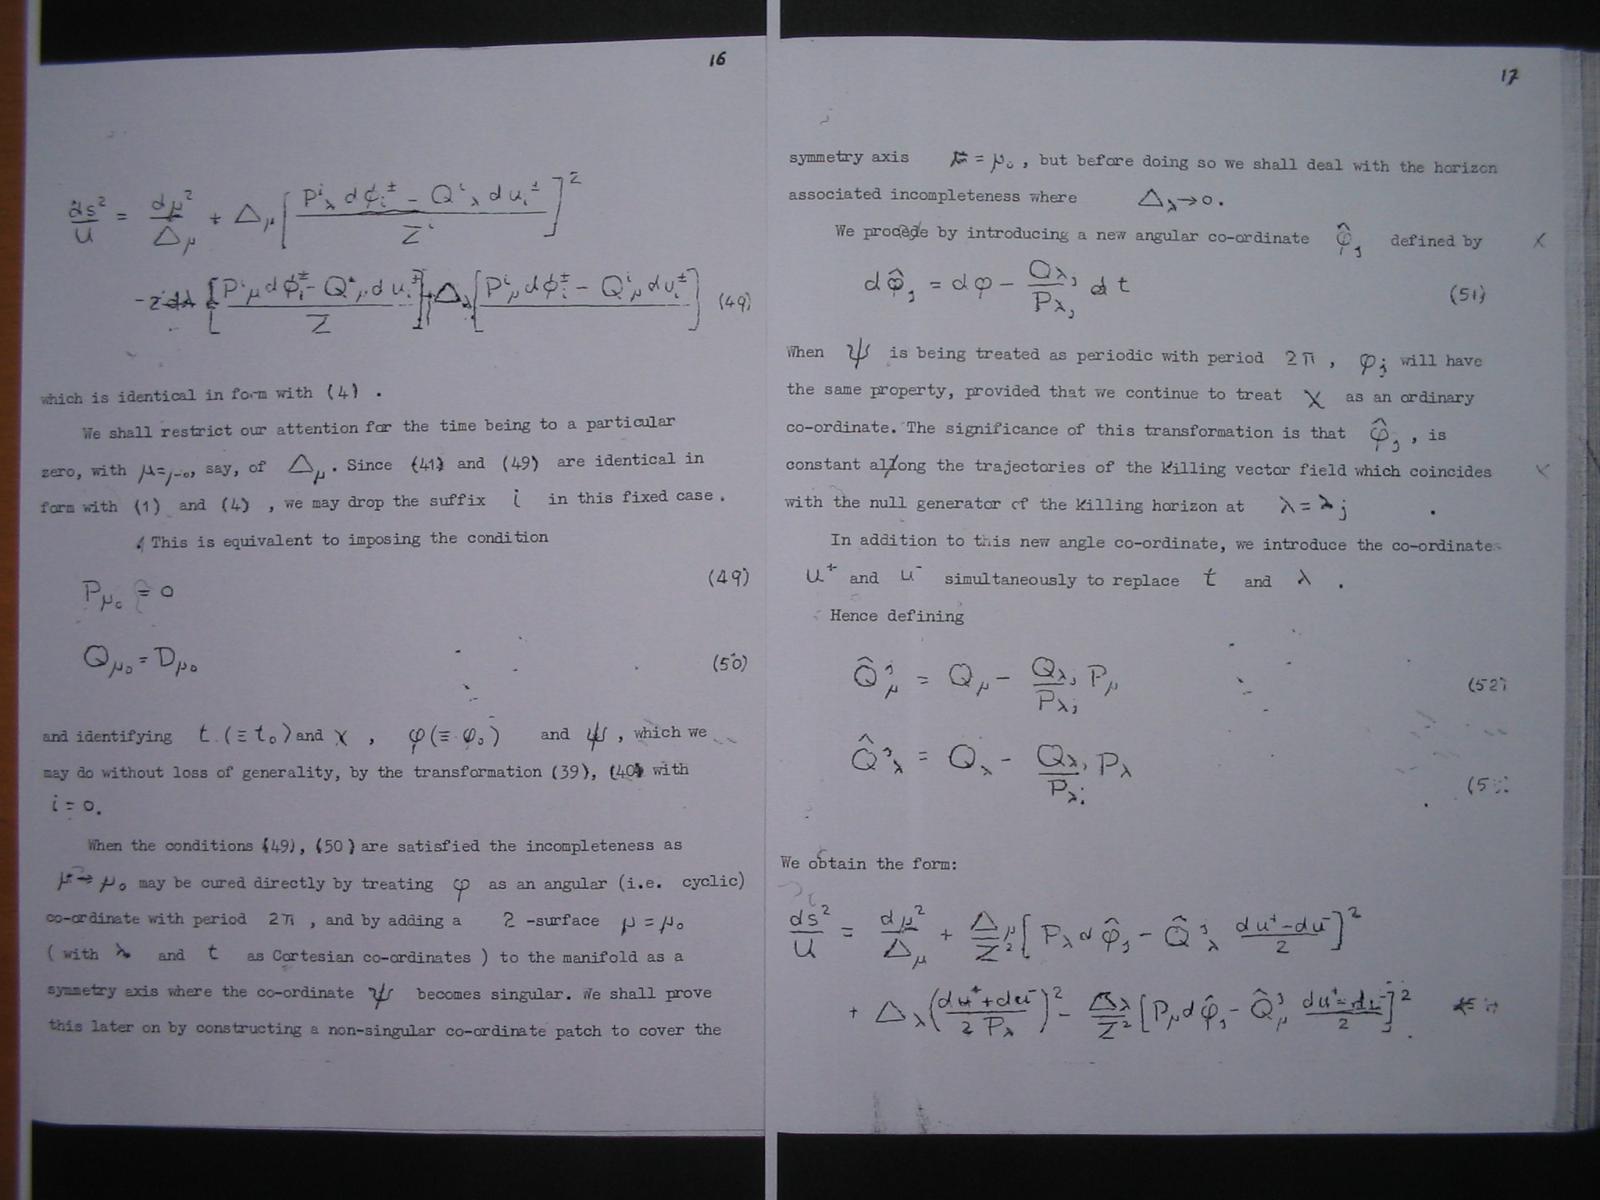 16
ds²/U = dμ²/Δμ + Δμ [ (Pⁱλ dϕᵢ± − Qⁱλ duᵢ±) / Zⁱ ]²
[ (Pⁱμ dϕᵢ± − Qⁱμ duᵢ±) / Z ] Δλ [ Pⁱμ dϕᵢ± − Qⁱμ duᵢ± ] (49)
which is identical in form with (4) .
We shall restrict our attention for the time being to a particular
zero, with μ=μ₀, say, of Δμ . Since (41) and (49) are identical in
form with (1) and (4) , we may drop the suffix i in this fixed case .
This is equivalent to imposing the condition
Pμ₀ = 0 (49)
Qμ₀ = Dμ₀ (50)
and identifying t (≡ t₀) and χ , φ (≡ φ₀) and ψ , which we
may do without loss of generality, by the transformation (39), (40) with
i = 0.
When the conditions (49), (50) are satisfied the incompleteness as
μ → μ₀ may be cured directly by treating φ as an angular (i.e. cyclic)
co-ordinate with period 2π , and by adding a 2 -surface μ = μ₀
( with λ and t as Cartesian co-ordinates ) to the manifold as a
symmetry axis where the co-ordinate ψ becomes singular. We shall prove
this later on by constructing a non-singular co-ordinate patch to cover the
17
symmetry axis μ = μ₀ , but before doing so we shall deal with the horizon
associated incompleteness where Δλ→0.
We procede by introducing a new angular co-ordinate φ̂ⱼ defined by X
dφ̂ⱼ = dφ − (Qλⱼ / Pλⱼ) dt (51)
When ψ is being treated as periodic with period 2π , φⱼ will have
the same property, provided that we continue to treat χ as an ordinary
co-ordinate. The significance of this transformation is that φ̂ⱼ , is
constant allong the trajectories of the Killing vector field which coincides X
with the null generator of the Killing horizon at λ = λⱼ .
In addition to this new angle co-ordinate, we introduce the co-ordinate
u⁺ and u⁻ simultaneously to replace t and λ .
Hence defining
Q̂ʲμ = Qμ − (Qλⱼ / Pλⱼ) Pμ (52)
Q̂ʲλ = Qλ − (Qλⱼ / Pλⱼ) Pλ (5
We obtain the form:
ds²/U = dμ²/Δμ + Δμ/Z² [ Pλ dφ̂ⱼ − Q̂ʲλ (du⁺−du⁻)/2 ]²
+ Δλ ( (du⁺+du⁻) / 2Pλ )² − Δλ/Z² [ Pμ dφ̂ⱼ − Q̂ʲμ (du⁺−du⁻)/2 ]²